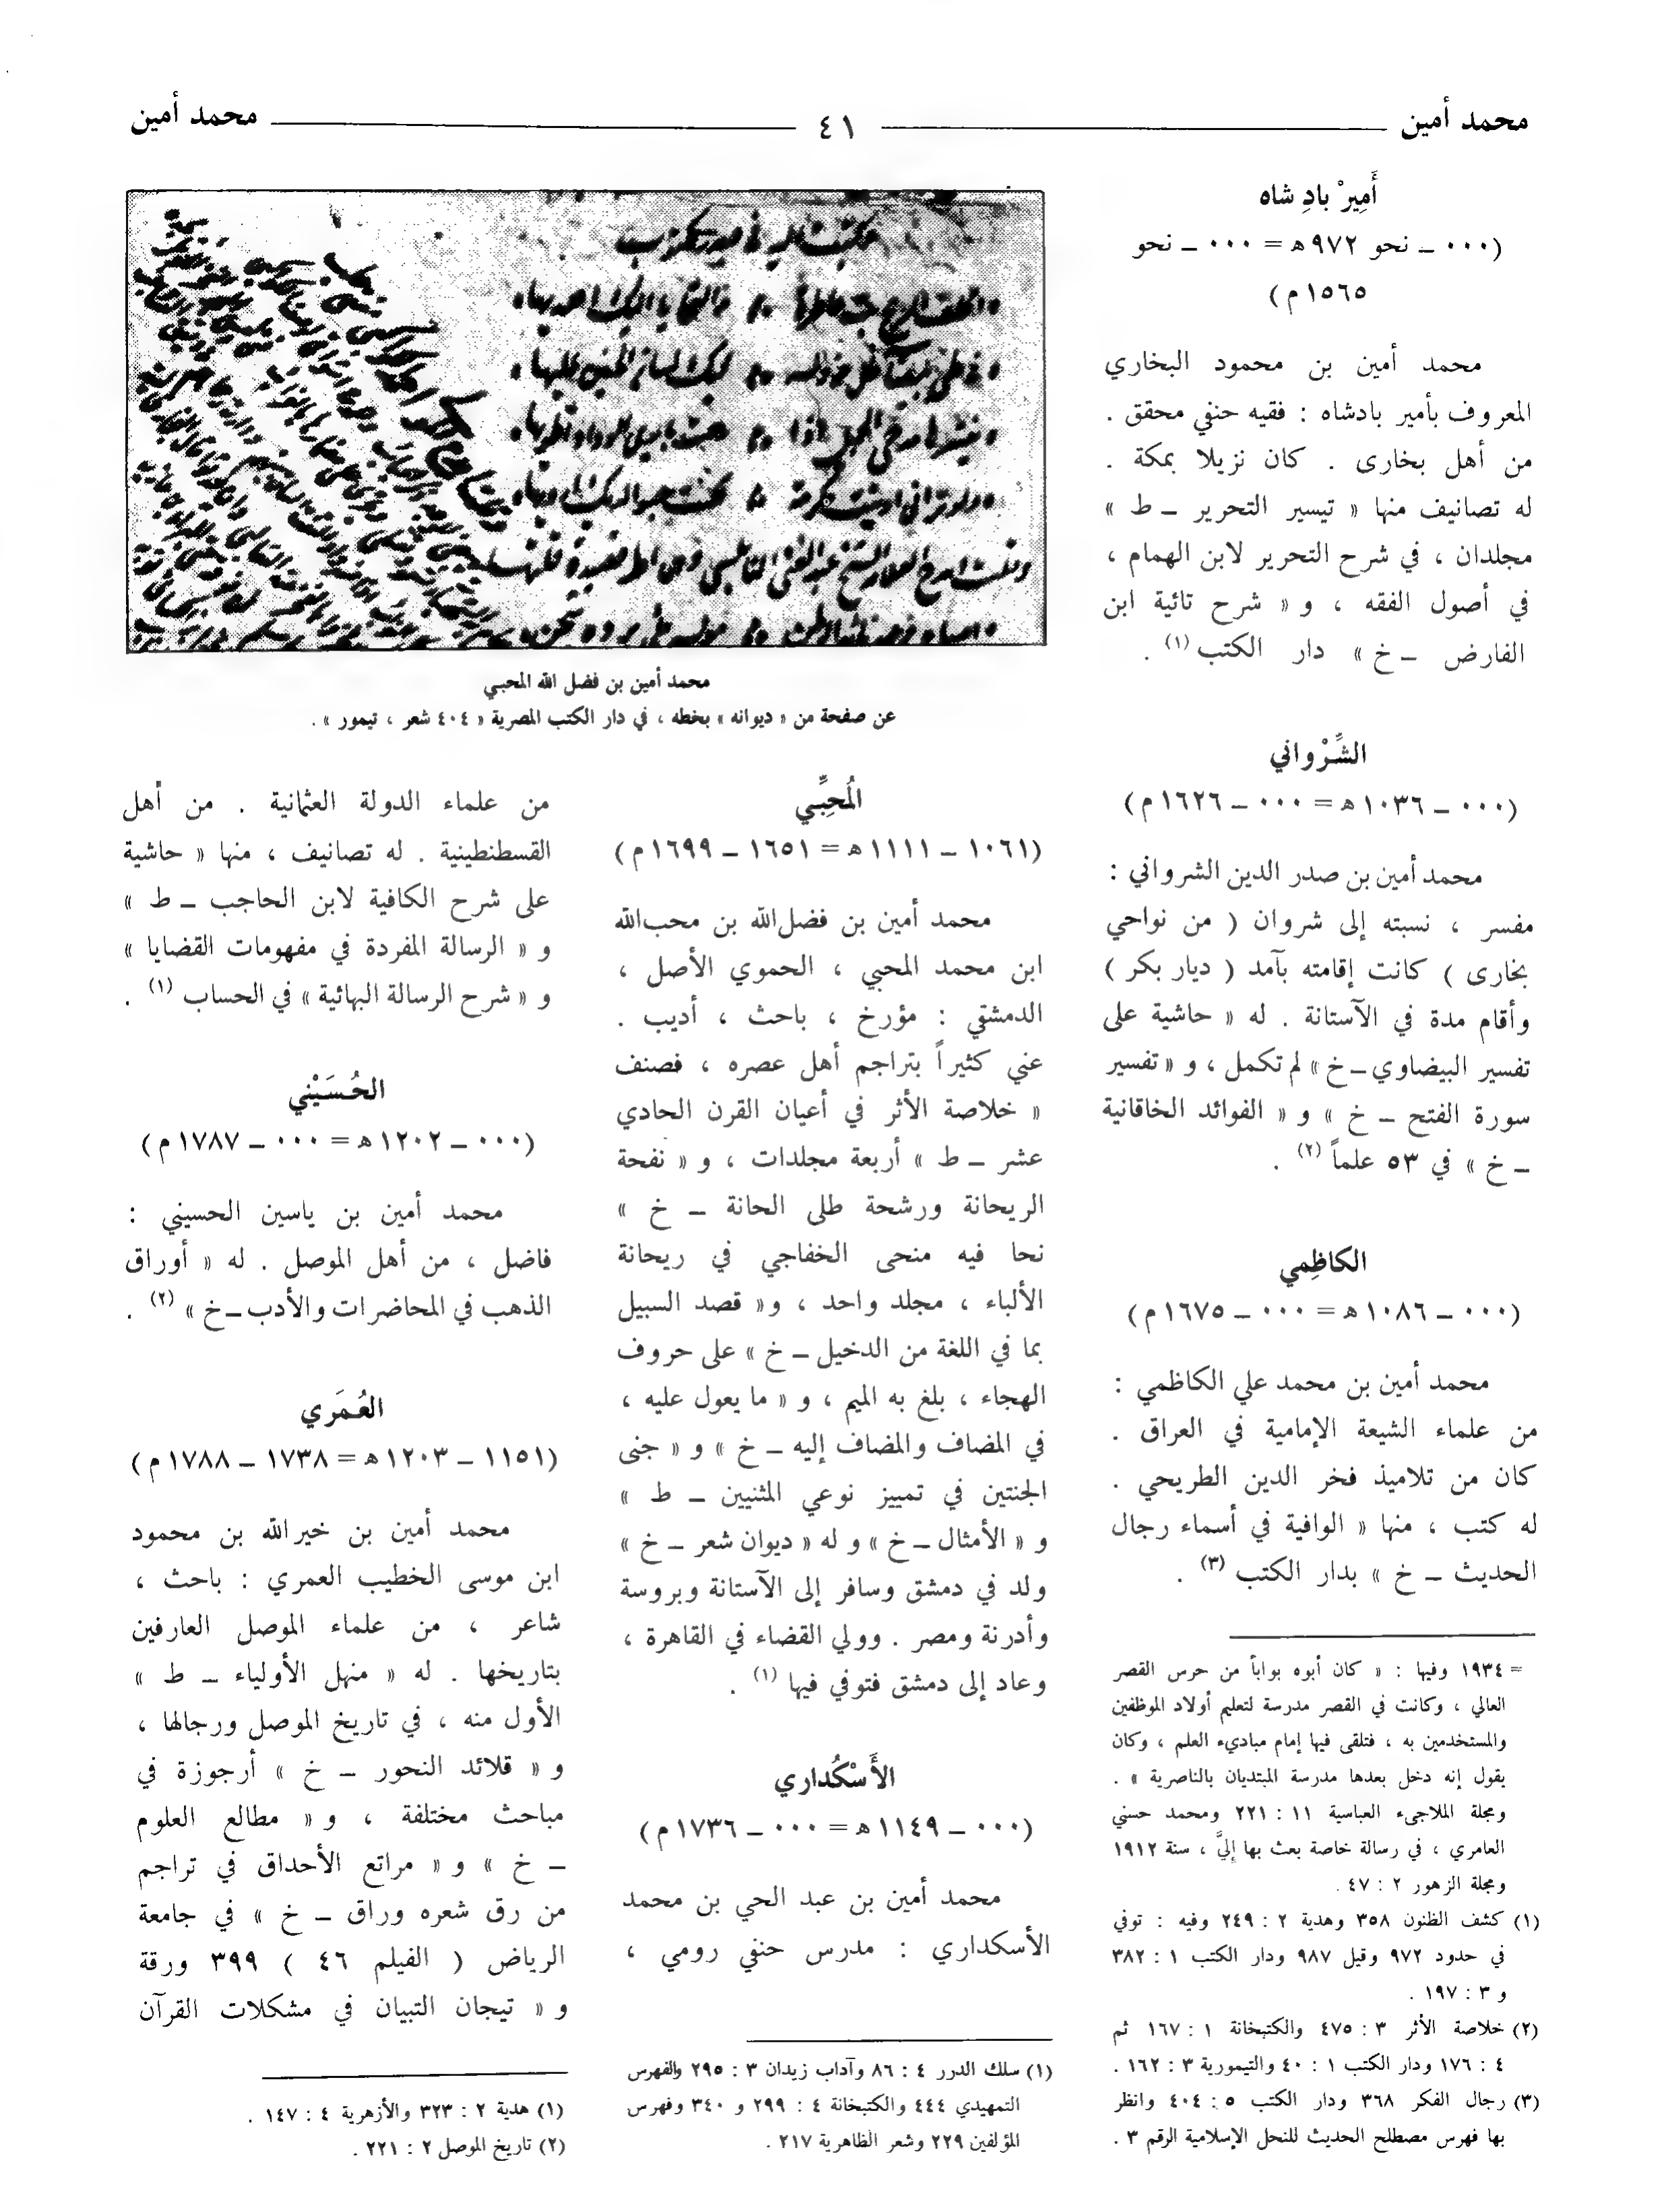 محمد أمين
٤١
محمد أمين
أَمِيرْ بادِ شاه
(٠٠٠ ــ نحو ٩٧٢ ه = ٠٠٠ ــ نحو
١٥٦٥ م)
محمد أمين بن محمود البخاري
المعروف بأمير بادشاه : فقيه حنفي محقق .
من أهل بخارى . كان نزيلا بمكة .
له تصانيف منها « تيسير التحرير ــ ط »
مجلدان ، في شرح التحرير لابن الهمام ،
في أصول الفقه ، و « شرح تائية ابن
الفارض ــ خ » دار الكتب (١) .
الشِّرْواني
(٠٠٠ ــ ١٠٣٦ ه = ٠٠٠ ــ ١٦٢٦ م)
محمد أمين بن صدر الدين الشرواني :
مفسر ، نسبته إلى شروان ( من نواحي
بخارى ) كانت إقامته بآمد ( ديار بكر )
وأقام مدة في الآستانة . له « حاشية على
تفسير البيضاوي ــ خ » لم تكمل ، و « تفسير
سورة الفتح ــ خ » و « الفوائد الخاقانية
ــ خ » في ٥٣ علماً (٢) .
الكاظِمي
(٠٠٠ ــ ١٠٨٦ ه = ٠٠٠ ــ ١٦٧٥ م)
محمد أمين بن محمد علي الكاظمي :
من علماء الشيعة الإمامية في العراق .
كان من تلاميذ فخر الدين الطريحي .
له كتب ، منها « الوافية في أسماء رجال
الحديث ــ خ » بدار الكتب (٣) .
= ١٩٣٤ وفيها : « كان أبوه بواباً من حرس القصر
العالي ، وكانت في القصر مدرسة لتعليم أولاد الموظفين
والمستخدمين به ، فتلقى فيها إمام مباديء العلم ، وكان
يقول إنه دخل بعدها مدرسة المبتديان بالناصرية » .
ومجلة الملاجيء العباسية ١١ : ٢٢١ ومحمد حسني
العامري ، في رسالة خاصة بعث بها إليَّ ، سنة ١٩١٢
ومجلة الزهور ٢ : ٤٧ .
(١) كشف الظنون ٣٥٨ وهدية ٢ : ٢٤٩ وفيه : توفي
في حدود ٩٧٢ وقيل ٩٨٧ ودار الكتب ١ : ٣٨٢
و ٣ : ١٩٧ .
(٢) خلاصة الأثر ٣ : ٤٧٥ والكتبخانة ١ : ١٦٧ ثم
٤ : ١٧٦ ودار الكتب ١ : ٤٠ والتيمورية ٣ : ١٦٢ .
(٣) رجال الفكر ٣٦٨ ودار الكتب ٥ : ٤٠٤ وانظر
بها فهرس مصطلح الحديث للنحل الإسلامية الرقم ٣ .
محمد أمين بن فضل الله المحبـي
عن صفحة من « ديوانه » بخطه ، في دار الكتب المصرية « ٤٠٤ شعر ، تيمور » .
المُحِبِّـي
(١٠٦١ ــ ١١١١ ه = ١٦٥١ ــ ١٦٩٩ م)
محمد أمين بن فضل الله بن محب الله
ابن محمد المحبي ، الحموي الأصل ،
الدمشقي : مؤرخ ، باحث ، أديب .
عني كثيراً بتراجم أهل عصره ، فصنف
« خلاصة الأثر في أعيان القرن الحادي
عشر ــ ط » أربعة مجلدات ، و « نفحة
الريحانة ورشحة طلى الحانة ــ خ »
نحا فيه منحى الخفاجي في ريحانة
الألباء ، مجلد واحد ، و« قصد السبيل
بما في اللغة من الدخيل ــ خ » على حروف
الهجاء ، بلغ به الميم ، و « ما يعول عليه ،
في المضاف والمضاف إليه ــ خ » و « جنى
الجنتين في تمييز نوعي المثنيين ــ ط »
و « الأمثال ــ خ » و له « ديوان شعر ــ خ »
ولد في دمشق وسافر إلى الآستانة وبروسة
وأدرنة ومصر . وولي القضاء في القاهرة ،
وعاد إلى دمشق فتوفي فيها (١) .
الأَسْكُداري
(٠٠٠ ــ ١١٤٩ ه = ٠٠٠ ــ ١٧٣٦ م)
محمد أمين بن عبد الحي بن محمد
الأسكداري : مدرس حنفي رومي ،
(١) سلك الدرر ٤ : ٨٦ وآداب زيدان ٣ : ٢٩٥ والفهرس
التمهيدي ٤٤٤ والكتبخانة ٤ : ٢٩٩ و ٣٤٠ وفهرس
المؤلفين ٢٢٩ وشعر الظاهرية ٢١٧ .
من علماء الدولة العثمانية . من أهل
القسطنطينية . له تصانيف ، منها « حاشية
على شرح الكافية لابن الحاجب ــ ط »
و « الرسالة المفردة في مفهومات القضايا »
و « شرح الرسالة البهائية » في الحساب (١) .
الحُسَيْني
(٠٠٠ ــ ١٢٠٢ ه = ٠٠٠ ــ ١٧٨٧ م)
محمد أمين بن ياسين الحسيني :
فاضل ، من أهل الموصل . له « أوراق
الذهب في المحاضرات والأدب ــ خ » (٢) .
العُمَري
(١١٥١ ــ ١٢٠٣ ه = ١٧٣٨ ــ ١٧٨٨ م)
محمد أمين بن خير الله بن محمود
ابن موسى الخطيب العمري : باحث ،
شاعر ، من علماء الموصل العارفين
بتاريخها . له « منهل الأولياء ــ ط »
الأول منه ، في تاريخ الموصل ورجالها ،
و « قلائد النحور ــ خ » أرجوزة في
مباحث مختلفة ، و « مطالع العلوم
ــ خ » و « مراتع الأحداق في تراجم
من رق شعره وراق ــ خ » في جامعة
الرياض ( الفيلم ٤٦ ) ٣٩٩ ورقة
و « تيجان التبيان في مشكلات القرآن
(١) هدية ٢ : ٣٢٣ والأزهرية ٤ : ١٤٧ .
(٢) تاريخ الموصل ٢ : ٢٢١ .